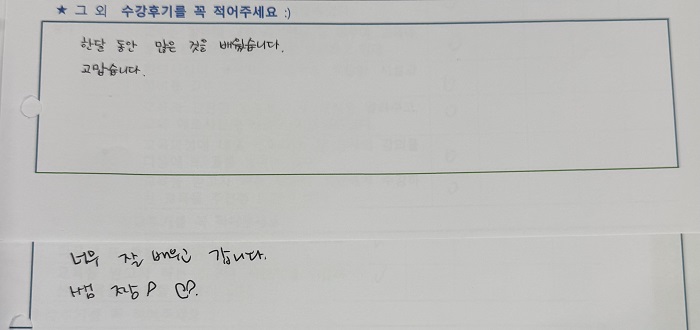 ★ 그 외 수강후기를 꼭 적어주세요 :)
한달 동안 많은 것을 배웠습니다.
고맙습니다.
너무 잘 배우고 갑니다.
쌤 짱